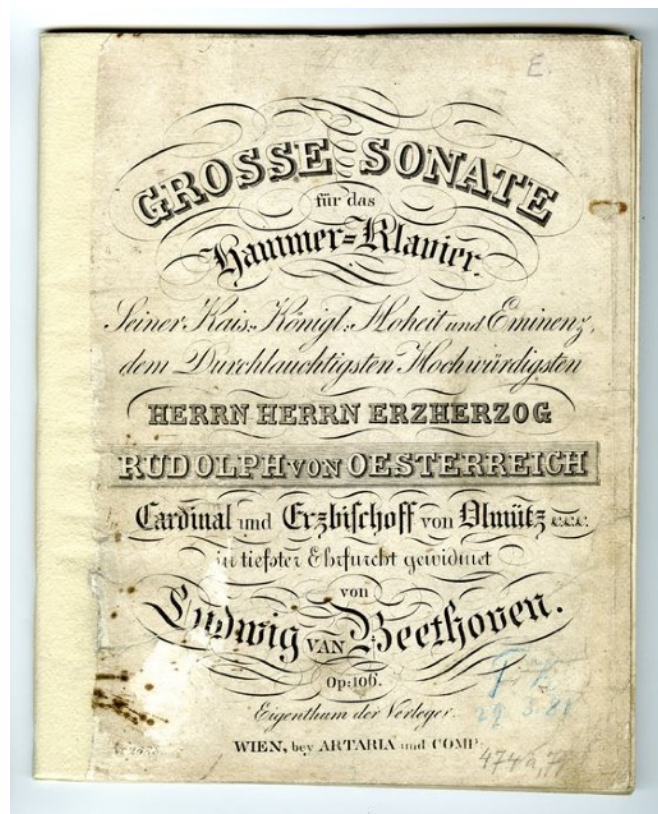 E.
GROSSE SONATE
für das
Hammer=Klavier.
Seiner Kais: Königl: Hoheit und Eminenz,
dem Durchlauchtigsten Hochwürdigsten
HERRN HERRN ERZHERZOG
RUDOLPH VON OESTERREICH
Cardinal und Erzbischoff von Olmütz &c.&c.&c.
in tiefster Ehrfurcht gewidmet
von
Ludwig VAN Beethoven.
Op: 106.
Eigenthum der Verleger.
29 3.
WIEN, bey ARTARIA und COMP.